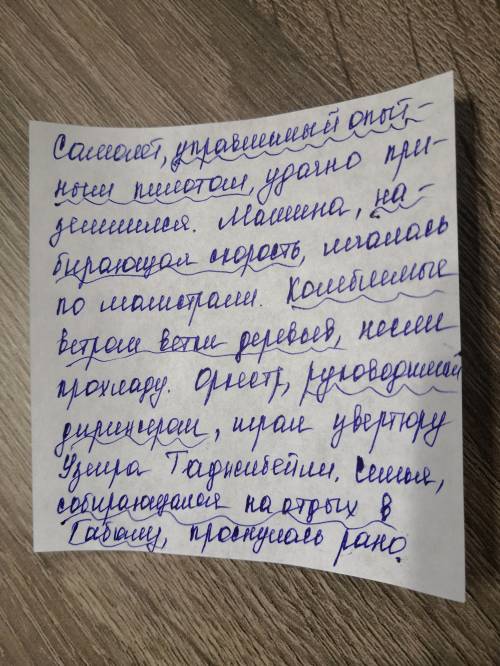 Самолёт, управляемый опыт-
ным пилотом, удачно при-
землился. Машина, на-
бирающая скорость, мчалась
по магистрали. Колеблемые
ветром ветви деревьев, несли
прохладу. Оркестр, руководимый
дирижером, играл увертюру
Узеира Гаджибейли. Семья,
собирающаяся на отдых в
Габалу, проснулась рано.